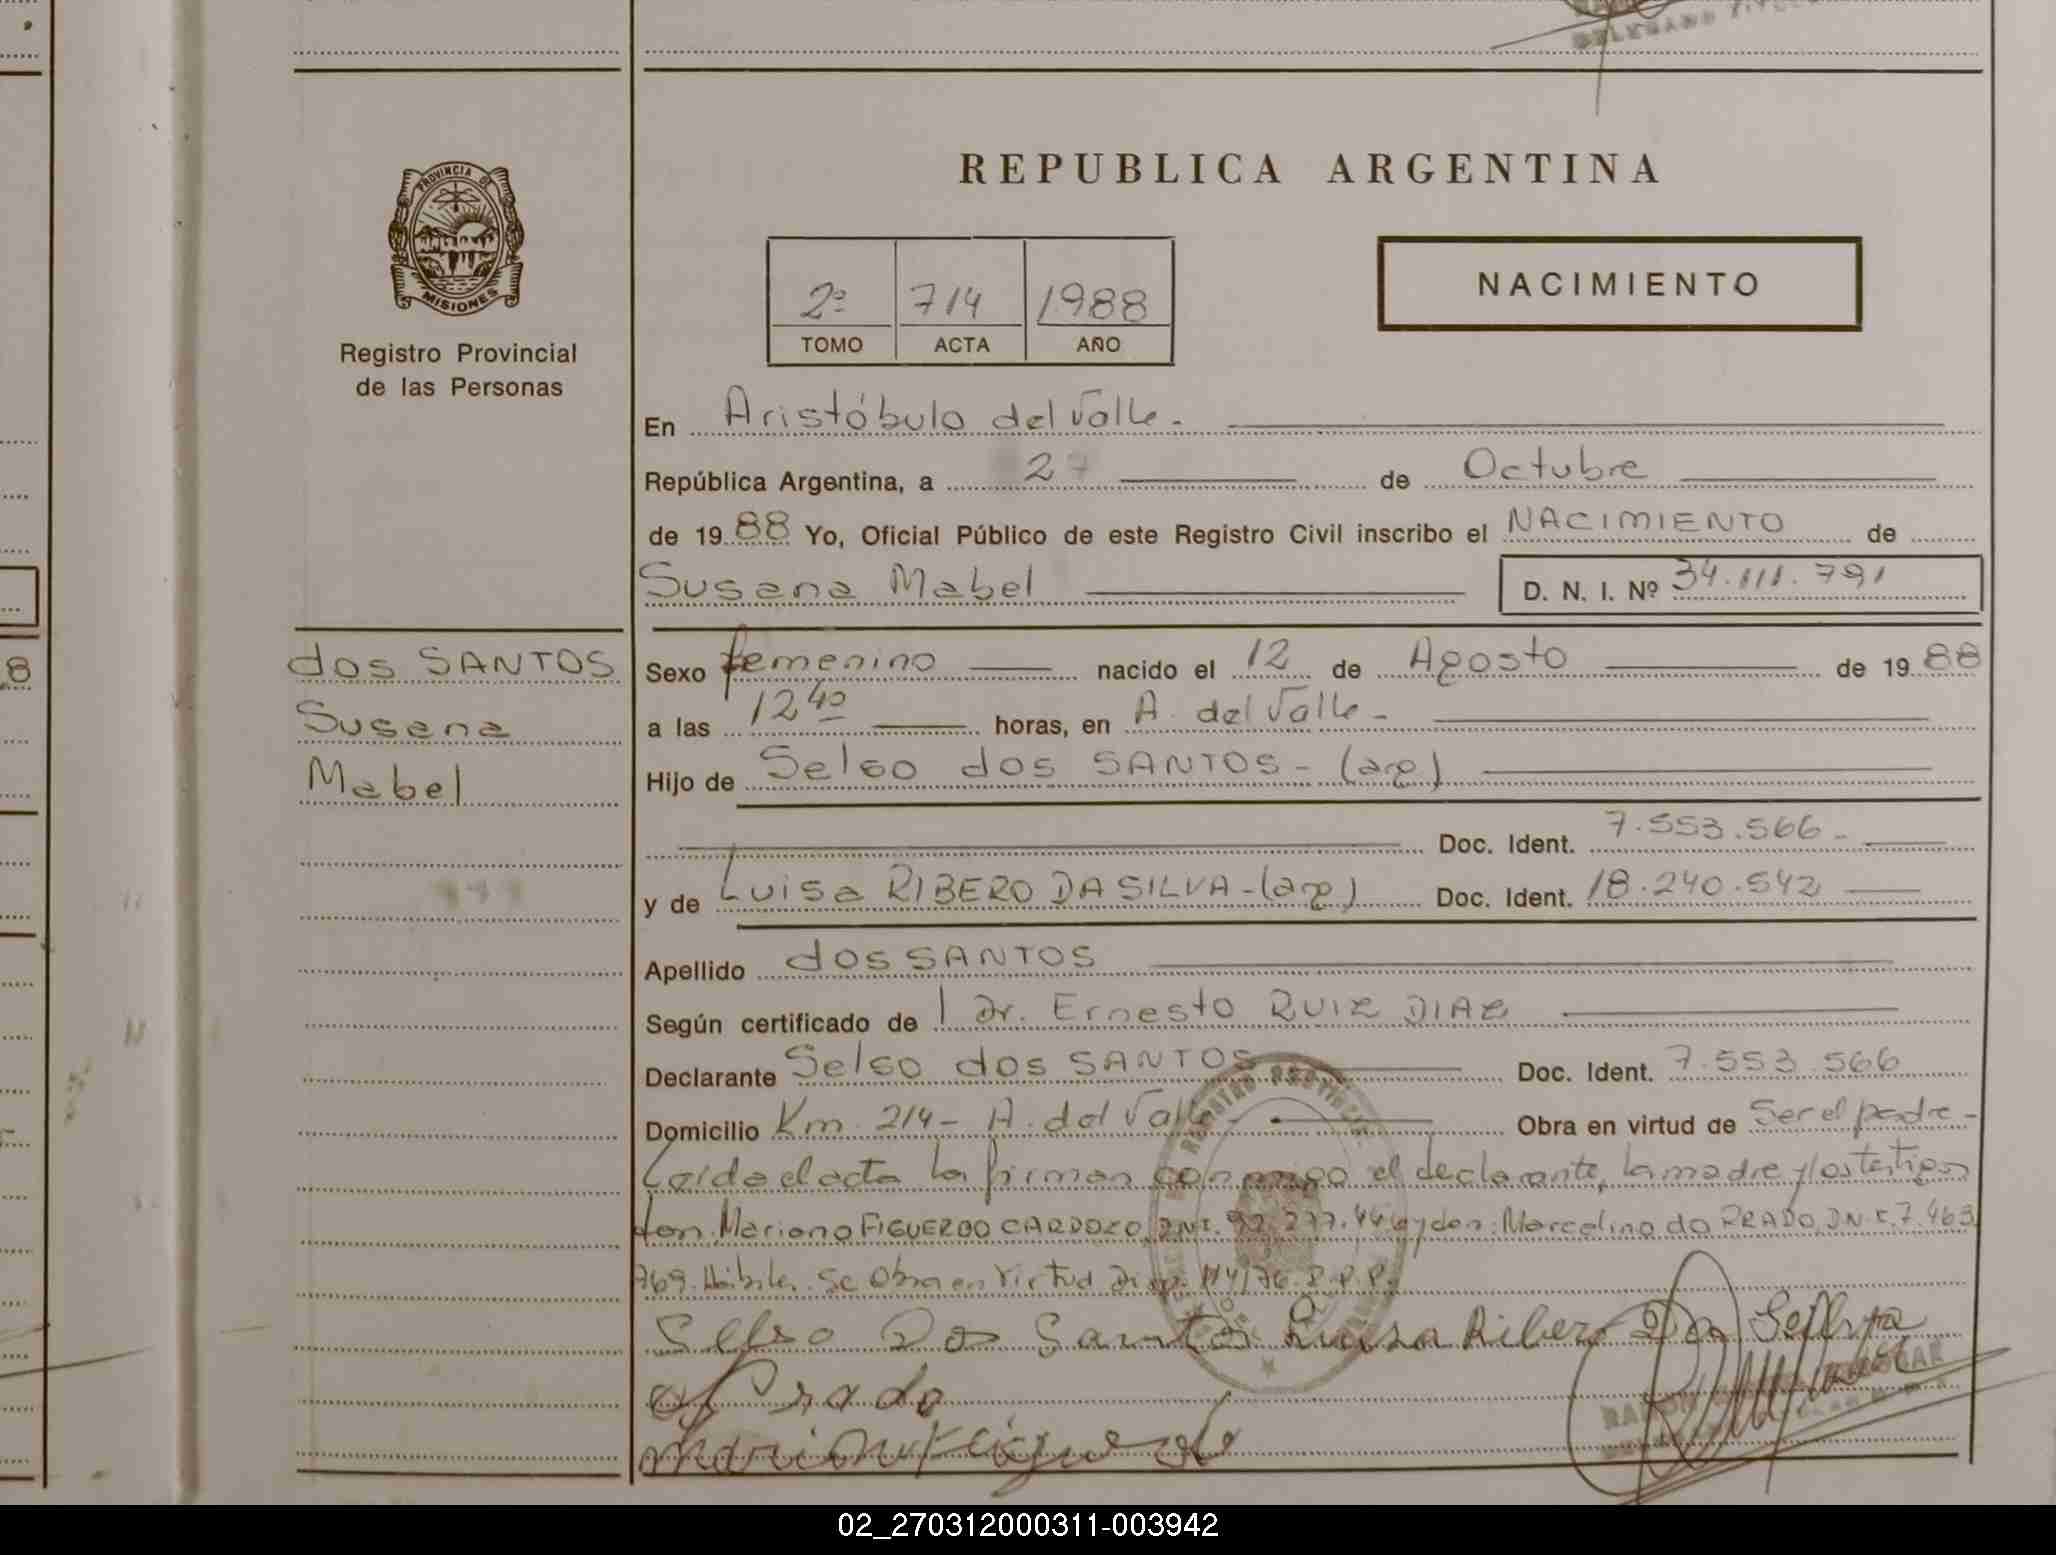 PROVINCIA DE
MISIONES
Registro Provincial
de las Personas
REPUBLICA ARGENTINA
2º 714 1988
TOMO ACTA AÑO
NACIMIENTO
En Aristóbulo del Valle.
República Argentina, a 27 de Octubre
de 1988 Yo, Oficial Público de este Registro Civil inscribo el NACIMIENTO de
Susana Mabel D. N. I. Nº 34.111.791
dos SANTOS
Susana
Mabel
Sexo femenino nacido el 12 de Agosto de 1988
a las 12 40 horas, en A. del Valle-
Hijo de Selso dos SANTOS - (arg)
Doc. Ident. 7.553.566-
y de Luisa RIBERO DA SILVA-(arg) Doc. Ident. 18.240.542
Apellido dos SANTOS
Según certificado de Dr. Ernesto RUIZ DIAZ
Declarante Selso dos SANTOS Doc. Ident. 7.553.566
Domicilio Km. 214- A. del Valle- Obra en virtud de Ser el padre-
Leída el acta la firman conmigo el declarante, la madre y los testigos
don: Mariano FIGUEREDO CARDOZO, D.N.I. 92.277.44 y don: Marcelino do PRADO, D.N.I. 7.463
769. Hábiles. Se Obra en Virtud Disp. 114/76. R.P.P.
Selso Dos Santos Luisa Ribero Da Silva
Prado
02_270312000311-003942